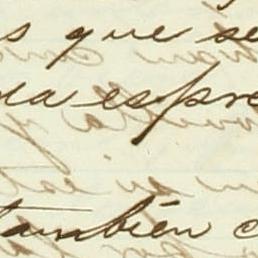 s que se
da espre
también c